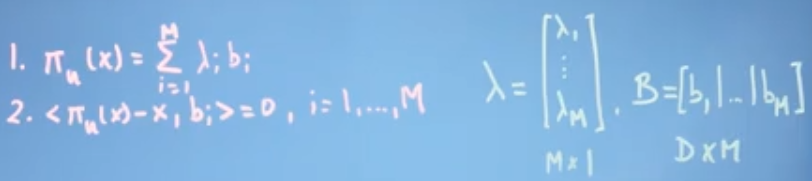 1. π_u(x) = Σ_{i=1}^{M} λ_i b_i
2. <π_u(x) - x, b_i> = 0, i = 1, ..., M
λ = [λ_1 ⋮ λ_M], B = [b_1|...|b_M]
M x 1 D x M